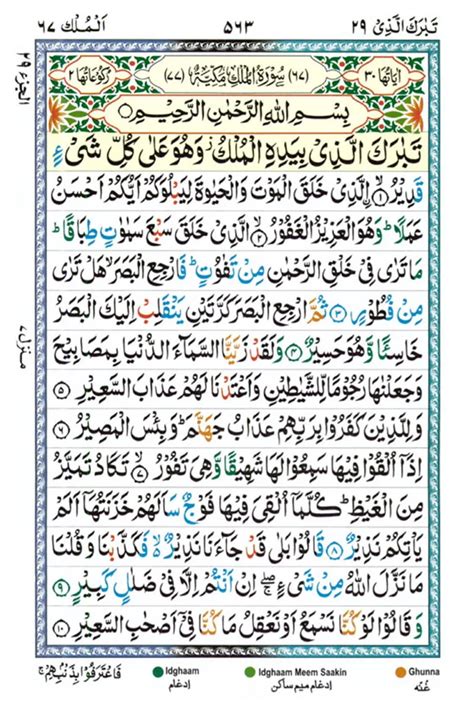 تَبٰرَكَ الَّذِىْ ٢٩ ٥٦٣ اَلْمُلْك ٦٧
اٰيَاتُهَا ٣٠ (٦٧) سُوْرَةُ الْمُلْكِ مَكِّيَّةٌ (٧٧) رُكُوْعَاتُهَا ٢
بِسْمِ اللّٰهِ الرَّحْمٰنِ الرَّحِيْمِ
تَبٰرَكَ الَّذِىْ بِيَدِهِ الْمُلْكُ ز وَهُوَ عَلٰى كُلِّ شَىْءٍ
قَدِيْرُ ۙ﴿١﴾ اۨلَّذِىْ خَلَقَ الْمَوْتَ وَالْحَيٰوةَ لِيَبْلُوَكُمْ اَيُّكُمْ اَحْسَنُ
عَمَلًا ؕ وَهُوَ الْعَزِيْزُ الْغَفُوْرُ ۙ﴿٢﴾ الَّذِىْ خَلَقَ سَبْعَ سَمٰوٰتٍ طِبَاقًا ؕ
مَا تَرٰى فِىْ خَلْقِ الرَّحْمٰنِ مِنْ تَفٰوُتٍ ؕ فَارْجِعِ الْبَصَرَ ۙ هَلْ تَرٰى
مِنْ فُطُوْرٍ ﴿٣﴾ ثُمَّ ارْجِعِ الْبَصَرَ كَرَّتَيْنِ يَنْقَلِبْ اِلَيْكَ الْبَصَرُ
خَاسِئًا وَّهُوَ حَسِيْرٌ ﴿٤﴾ وَلَقَدْ زَيَّنَّا السَّمَآءَ الدُّنْيَا بِمَصَابِيْحَ
وَجَعَلْنٰهَا رُجُوْمًا لِّلشَّيٰطِيْنِ وَاَعْتَدْنَا لَهُمْ عَذَابَ السَّعِيْرِ ﴿٥﴾
وَلِلَّذِيْنَ كَفَرُوْا بِرَبِّهِمْ عَذَابُ جَهَنَّمَ ؕ وَبِئْسَ الْمَصِيْرُ ﴿٦﴾
اِذَاۤ اُلْقُوْا فِيْهَا سَمِعُوْا لَهَا شَهِيْقًا وَّهِىَ تَفُوْرُ ۙ﴿٧﴾ تَكَادُ تَمَيَّزُ
مِنَ الْغَيْظِ ؕ كُلَّمَاۤ اُلْقِىَ فِيْهَا فَوْجٌ سَاَلَهُمْ خَزَنَتُهَاۤ اَلَمْ
يَاْتِكُمْ نَذِيْرٌ ﴿٨﴾ قَالُوْا بَلٰى قَدْ جَآءَنَا نَذِيْرٌ ۙ فَكَذَّبْنَا وَقُلْنَا
مَا نَزَّلَ اللّٰهُ مِنْ شَىْءٍ ۖۚ اِنْ اَنْتُمْ اِلَّا فِىْ ضَلٰلٍ كَبِيْرٍ ﴿٩﴾
وَ قَالُوْا لَوْ كُنَّا نَسْمَعُ اَوْ نَعْقِلُ مَا كُنَّا فِىْۤ اَصْحٰبِ السَّعِيْرِ ﴿١٠﴾
فَاعْتَرَفُوْا بِذَنْۢبِهِمْ ۚ
Idghaam
اِدغام
Idghaam Meem Saakin
اِدغام میم ساکن
Ghunna
غُنّه
الجزء ٢٩
منزل ٧